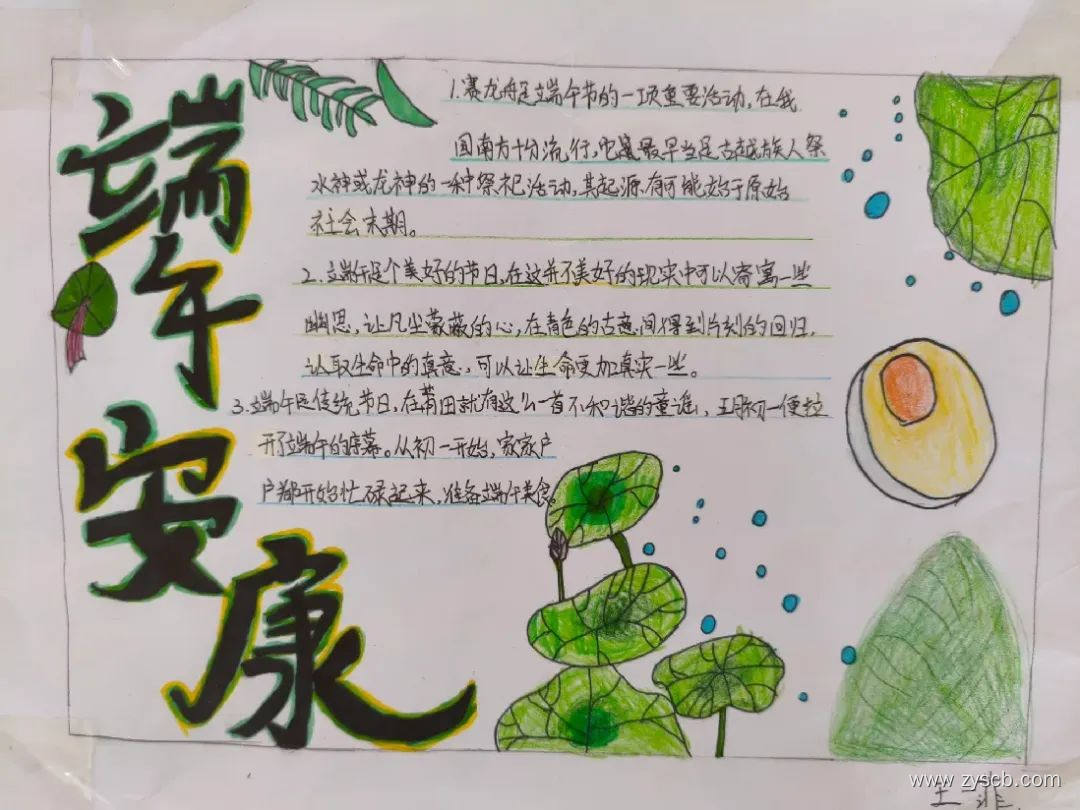 端午安康
1.赛龙舟是端午节的一项重要活动,在我
国南方十分流行,它最早当是古越族人祭
水神或龙神的一种祭祀活动,其起源有可能始于原始
社会末期。
2.端午是个美好的节日,在这并不美好的现实中可以寄寓一些
幽思,让凡尘蒙蔽的心,在青色的古意间得到片刻的回归,
认取生命中的真意,可以让生命更加真实一些。
3.端午是传统节日,在莆田就有这么一首不和谐的童谣,五月初一便拉
开了端午的序幕。从初一开始,家家户
户都开始忙碌起来,准备端午美食。
www.zyscb.com
王一非